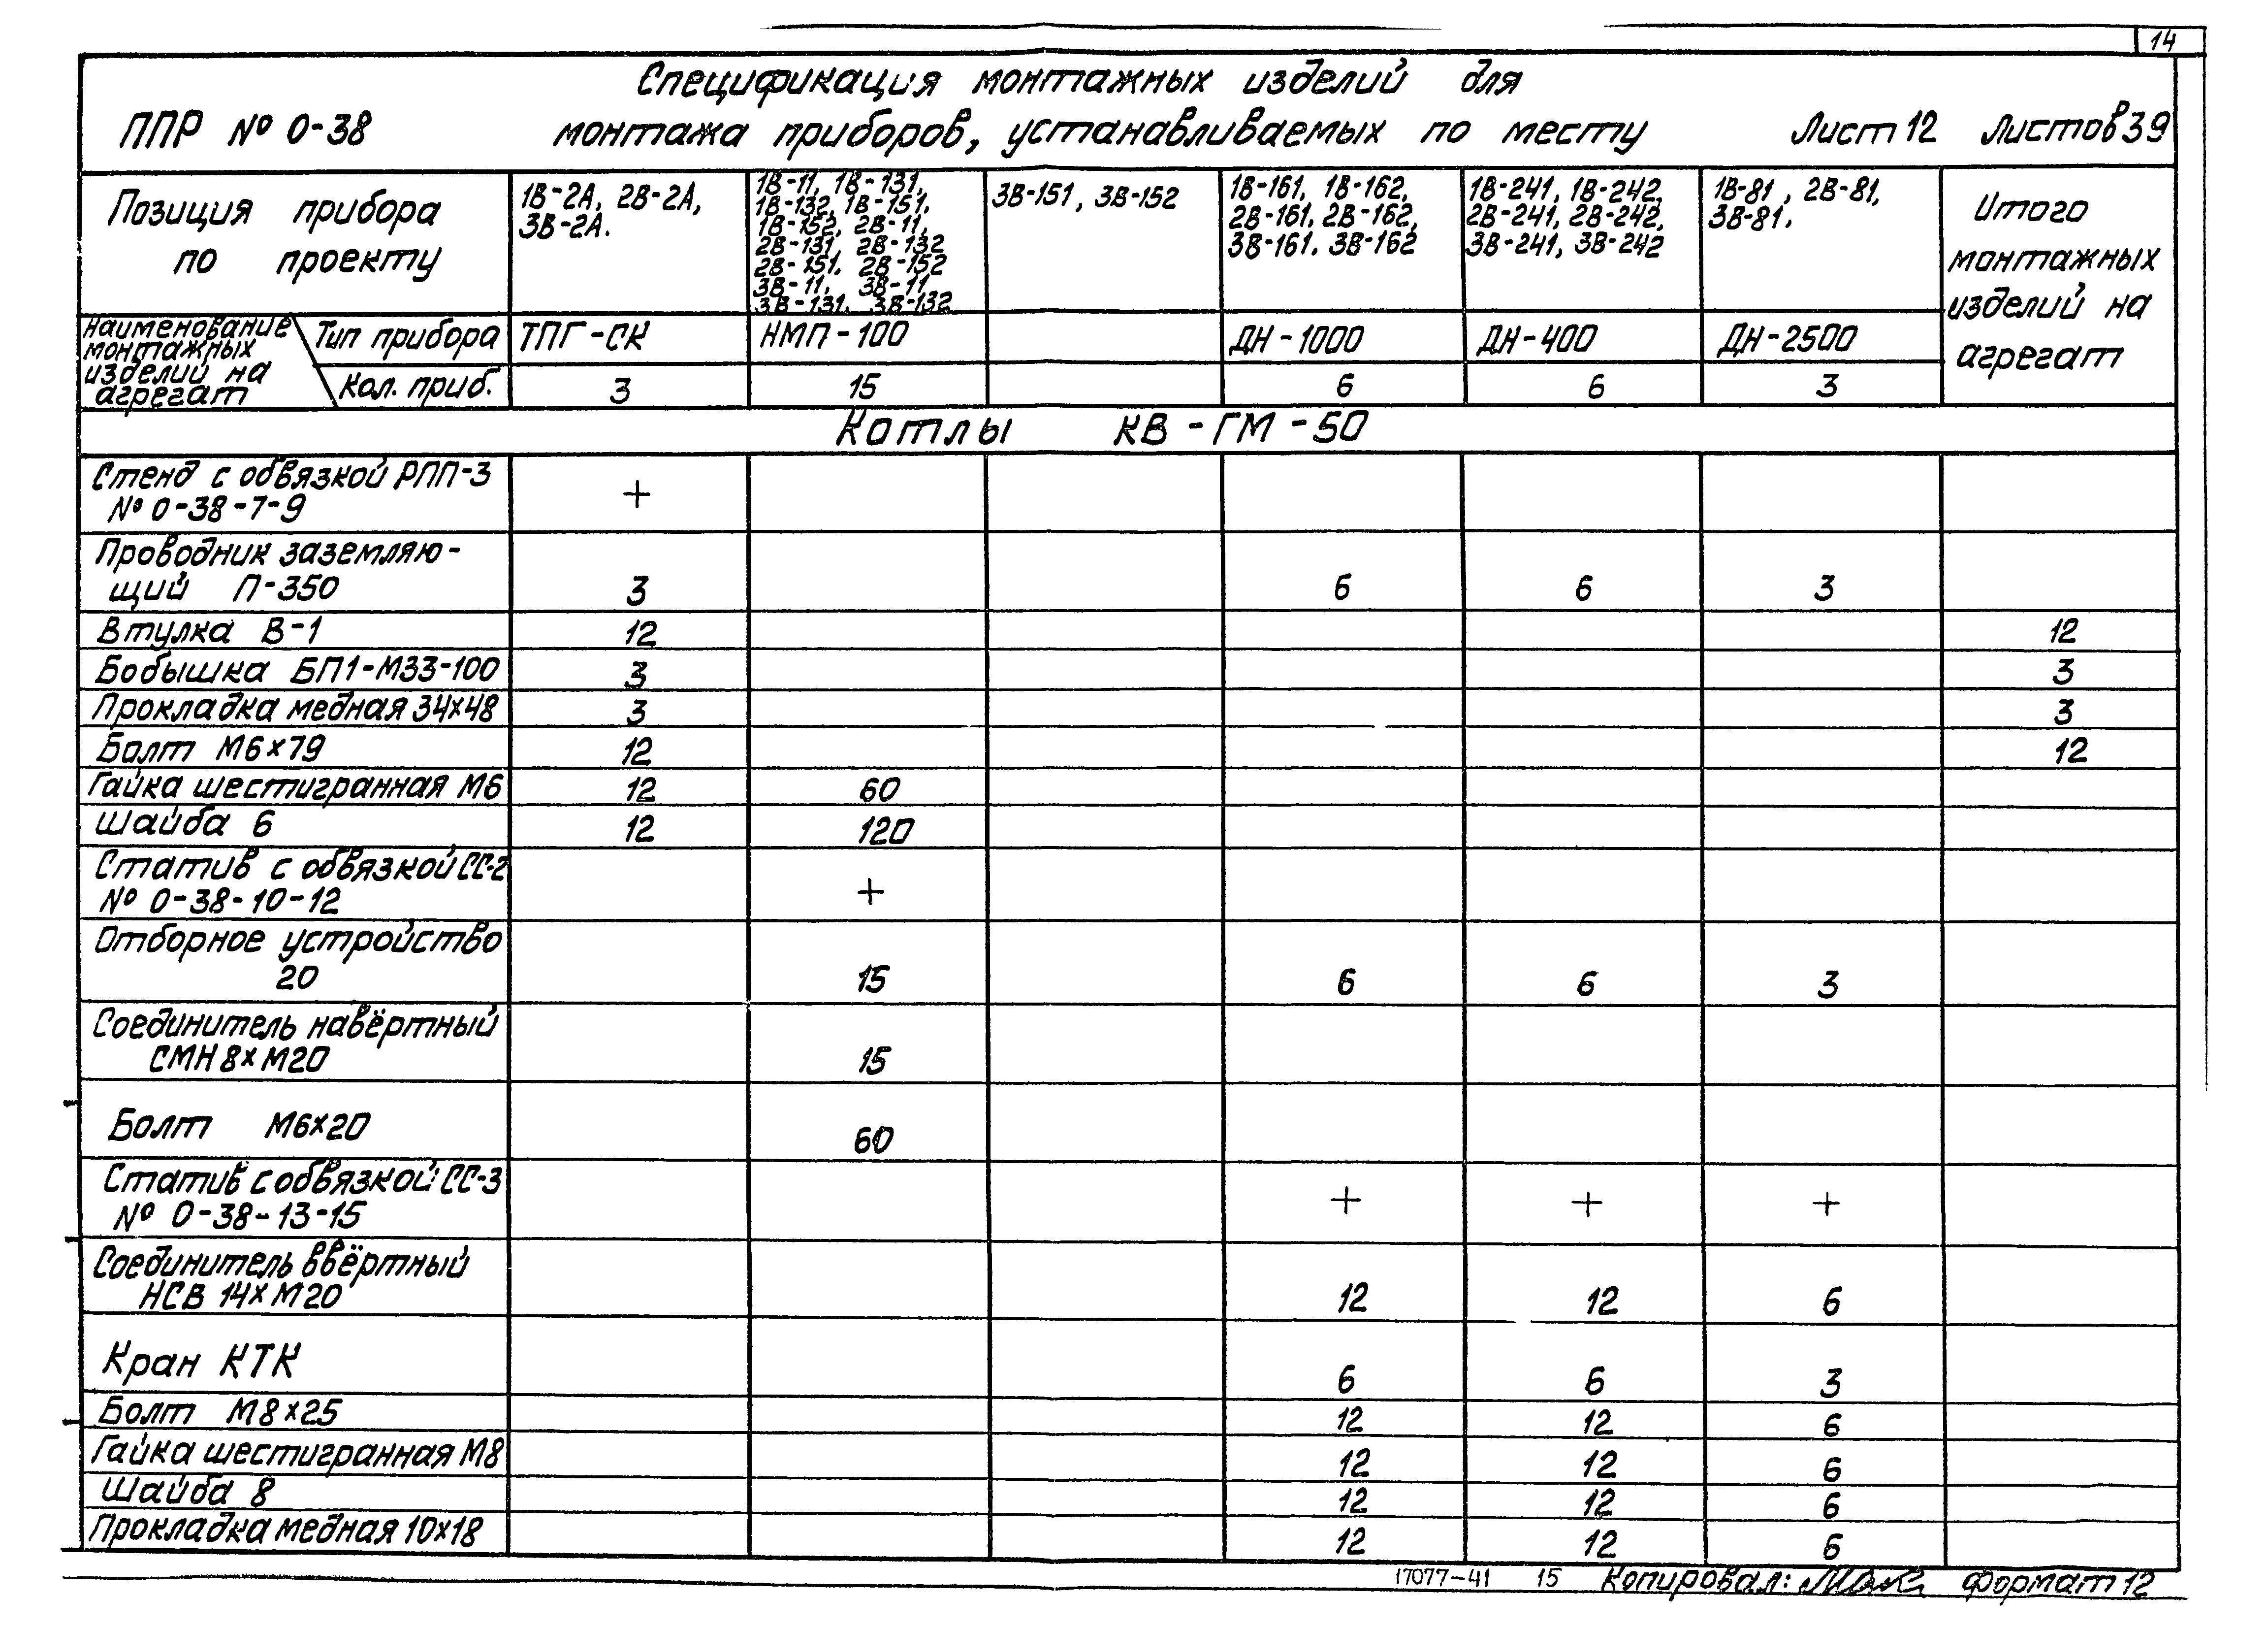 14
Спецификация монтажных изделий для
ППР № 0-38 монтажа приборов, устанавливаемых по месту Лист 12 Листов 39
Позиция прибора
по проекту
1В-2А, 2В-2А,
3В-2А.
1В-11, 1В-131,
1В-132, 1В-151,
1В-152, 2В-11,
2В-131, 2В-132
2В-151, 2В-152
3В-11, 3В-11
3В-131, 3В-132
3В-151, 3В-152
1В-161, 1В-162,
2В-161, 2В-162,
3В-161. 3В-162
1В-241, 1В-242,
2В-241, 2В-242,
3В-241, 3В-242
1В-81, 2В-81,
3В-81.
Итого
монтажных
изделий на
агрегат
Наименование
монтажных
изделий на
агрегат
Тип прибора ТПГ-СК НМП-100 ДН-1000 ДН-400 ДН-2500
Кол. приб. 3 15 6 6 3
Котлы КВ-ГМ-50
Стенд с обвязкой РПП-3
№ 0-38-7-9 +
Проводник заземляю-
щий П-350 3 6 6 3
Втулка В-1 12 12
Бобышка БП1-М33-100 3 3
Прокладка медная 34х48 3 3
Болт М6х79 12 12
Гайка шестигранная М6 12 60
Шайба 6 12 120
Статив с обвязкой СС-2
№ 0-38-10-12 +
Отборное устройство
20 15 6 6 3
Соединитель навёртный
СМН 8х М20 15
Болт М6х20 60
Статив с обвязкой СС-3
№ 0-38-13-15 + + +
Соединитель ввёртный
НСВ 14х М20 12 12 6
Кран КТК 6 6 3
Болт М8х25 12 12 6
Гайка шестигранная М8 12 12 6
Шайба 8 12 12 6
Прокладка медная 10х18 12 12 6
17077-41 15 Копировал: Формат 12